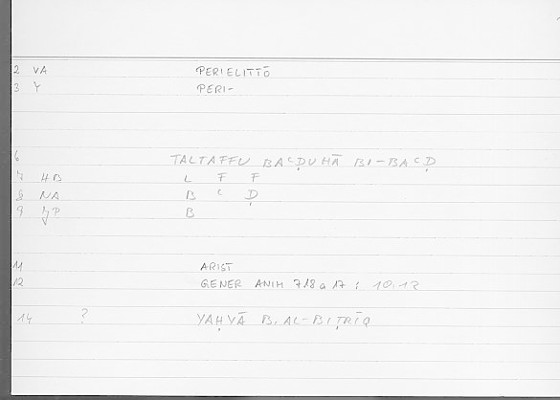 2 VA PERIELITTŌ
3 Y PERI-
6 TALTAFFU BAʿḌUHĀ BI-BAʿḌ
7 HB L F F
8 NA B ʿ Ḍ
9 JP B
11 ARIST
12 GENER ANIM 718 a 17 ; 10.12
14 ? YAḤYĀ B. AL-BIṬRĪQ